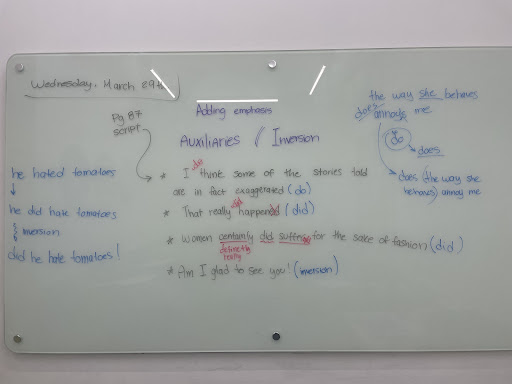 Wednesday, March 29th
Adding emphasis
Auxiliaries // Inversion
Pg 87
script
he hated tomatoes
he did hate tomatoes
inversion
did he hate tomatoes!
do
* I think some of the stories told
are in fact exaggerated (do)
did
* That really happened (did)
* Women certainly did suffer for the sake of fashion (did)
definetly
really
* Am I glad to see you! (inversion)
the way she behaves
does annoys me
do
does
does (the way she
behaves) annoy me